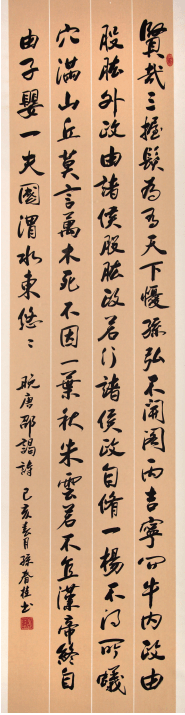 賢哉三握髮為有天下憂孫弘不開閣丙吉寧問牛内政由
股肱外政由諸侯股肱政若行諸侯政自脩一物不得所蟻
穴滿山丘莫言萬木死不因一葉秋朱雲若不直漢帝終自
由子嬰一失國渭水東悠〻 晚唐邵謁詩 己亥春月孫春桂書